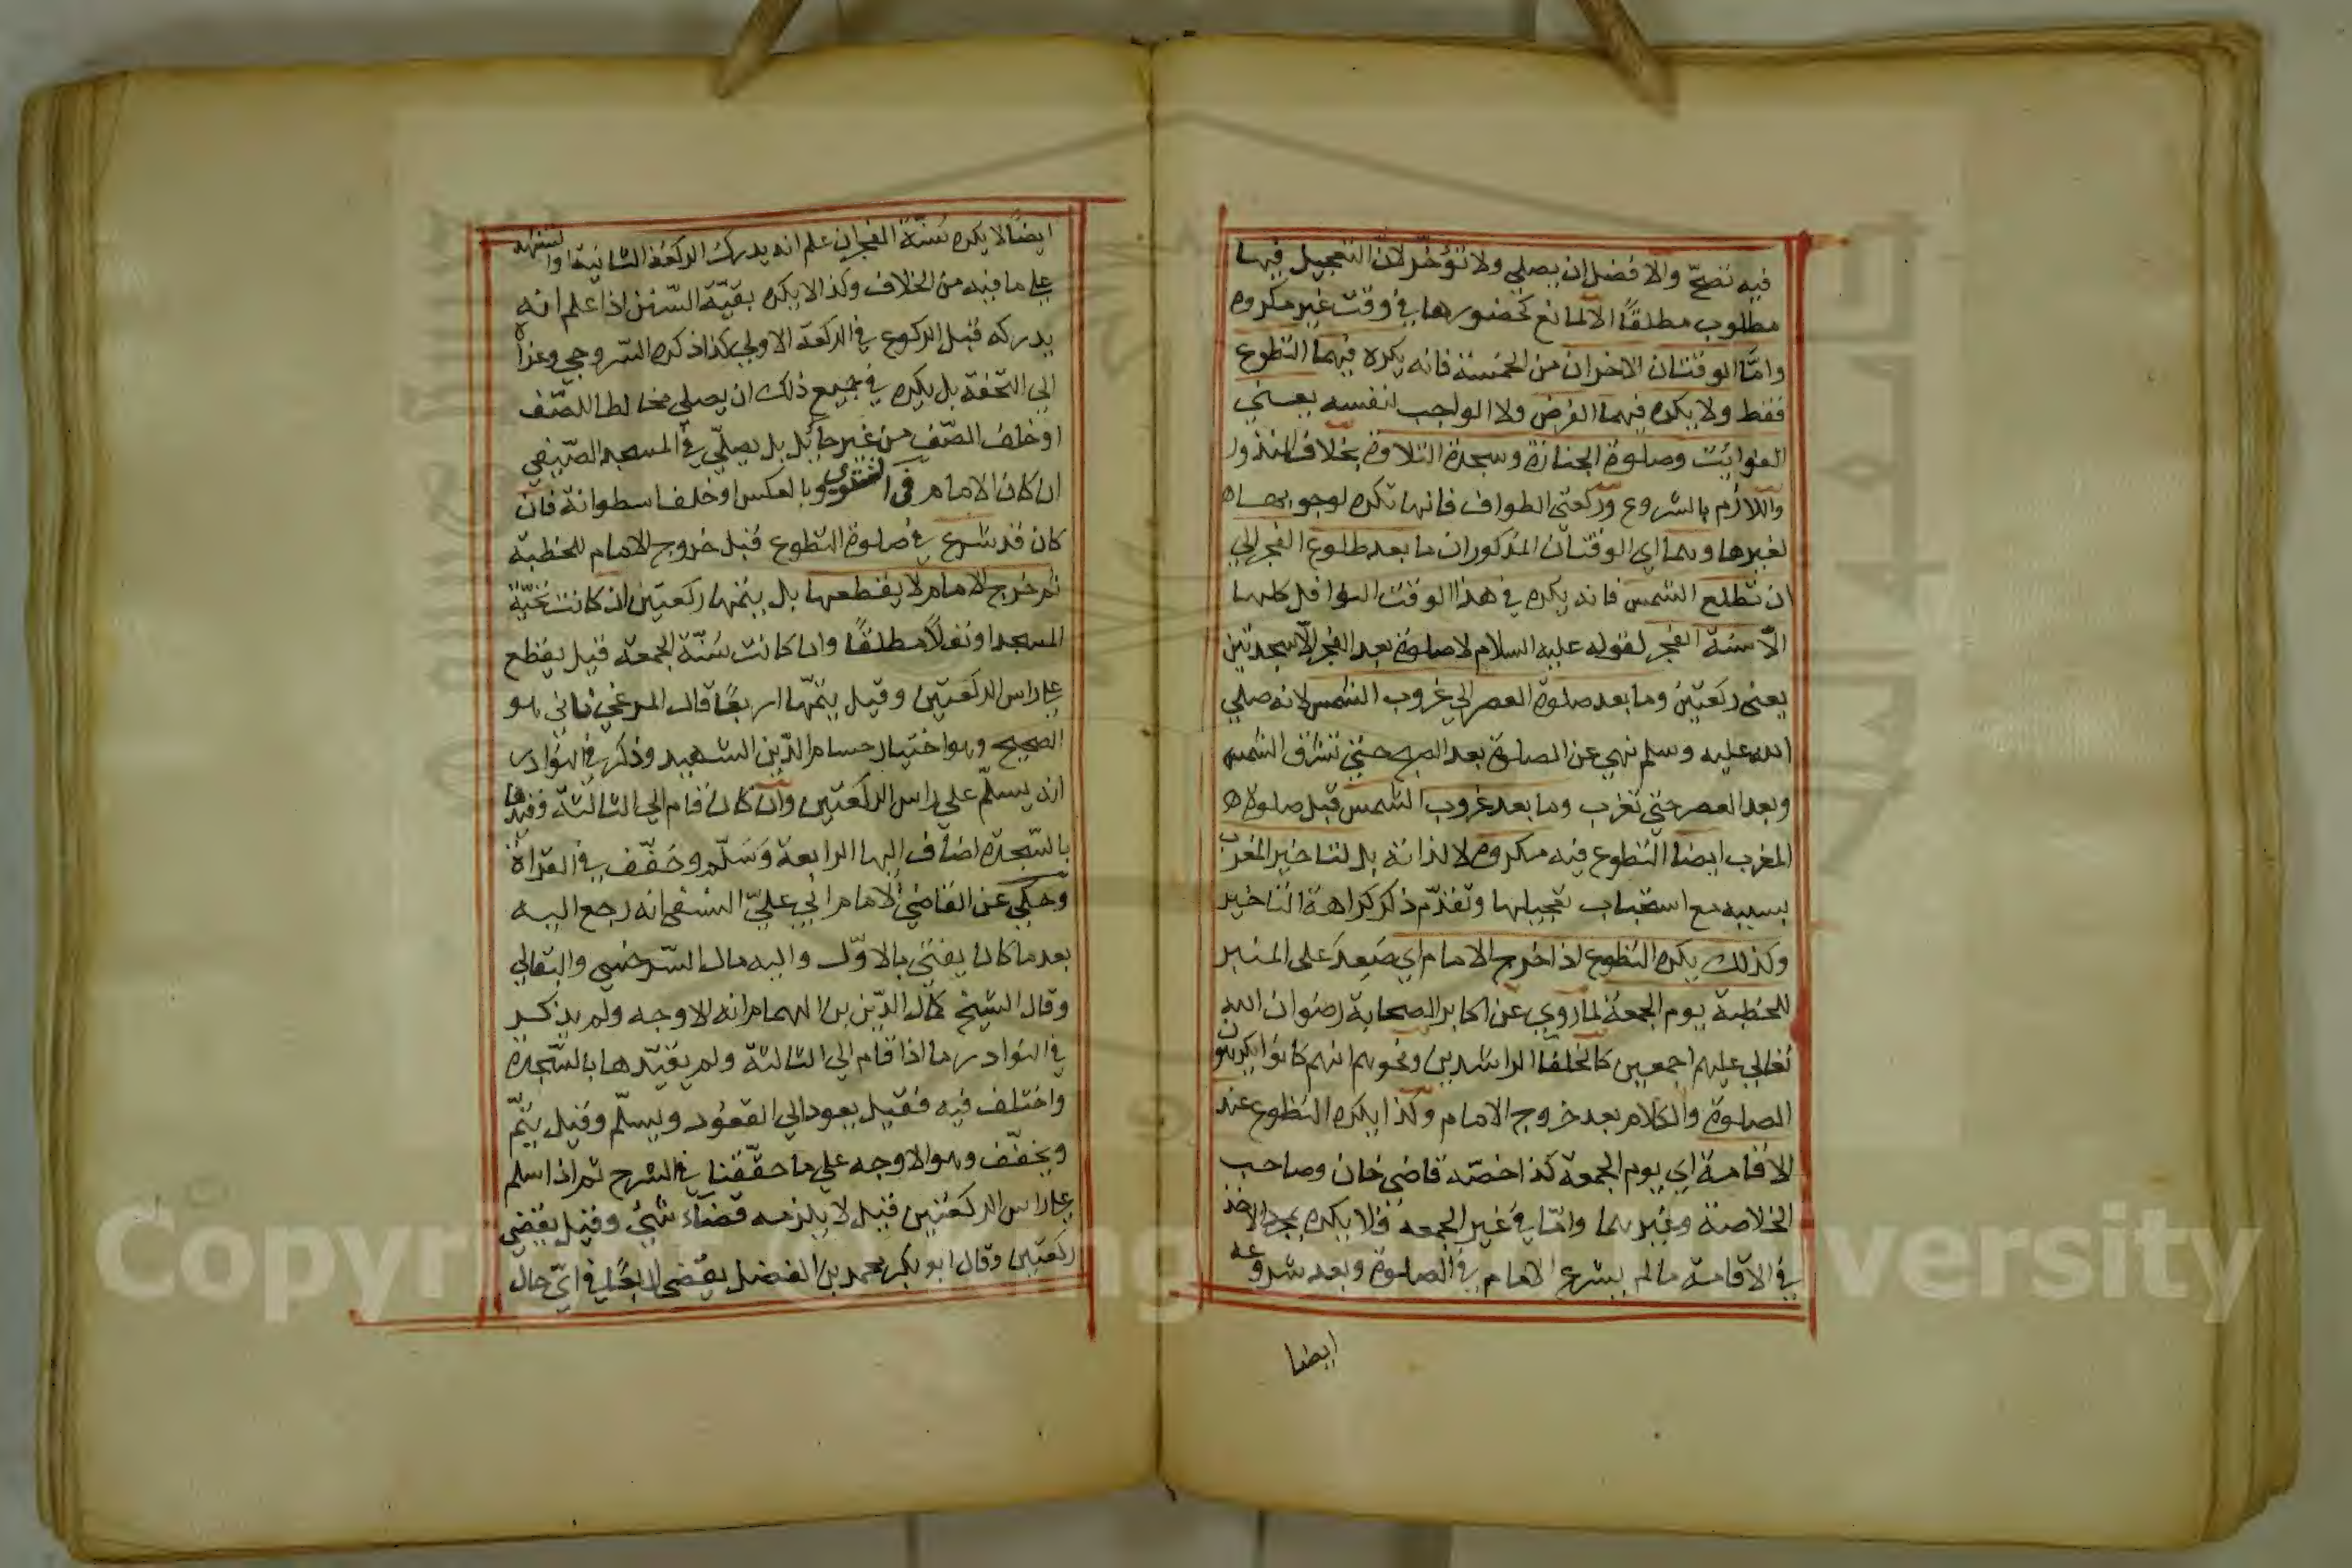 فيه تصحّ والافضل ان يصلي ولا تؤخّر لانّ التعجيل فيها
مطلوب مطلقًا الالمانع كحضورها في وقت غير مكروه
وامّا الوقتان الاخران من الخمسة فانه يكره فيهما التطوع
فقط ولا يكره فيهما الفرض ولا الواجب لنفسه يعني
الفوائت وصلوة الجنازة وسجدة التلاوة بخلاف المنذور
واللازم بالشروع وركعتي الطواف فانها تكره لوجوبها
لغيرها وهما اي الوقتان المذكوران ما بعد طلوع الفجر الي
ان تطلع الشمس فانه يكره في هذا الوقت النوافل كلها
الّا سنة الفجر لقوله عليه السلام لا صلوة بعد الفجر الّا سجدتين
يعني ركعتين وما بعد صلوة العصر الي غروب الشمس لانه صلي
الله عليه وسلم نهي عن الصلوة بعد الصبح حتي تشرق الشمس
وبعد العصر حتي تغرب وما بعد غروب الشمس قبل صلوة
المغرب ايضا التطوع فيه مكروه لا لذاته بل لتاخير المغرب
بسببه مع استحباب تعجيلها وتقدّم ذكر كراهة التاخير
وكذلك يكره التطوع اذا خرج الامام اي صعد على المنبر
للخطبة يوم الجمعة لما روي عن اكابر الصحابة رضوان الله
تعالي عليهم اجمعين كالخلفا الراشدين ونحوهم انهم كانوا يكرهون
الصلوة والكلام بعد خروج الامام وكذا يكره التطوع عند
الاقامة اي يوم الجمعة كذا خصّه قاضي خان وصاحب
الخلاصة وغيرهما وامّا في غير الجمعة فلا يكره بمجرد الاخذ
في الاقامة مالم يشرع الامام في الصلوة وبعد شروعه
ايضا
ايضًا لا يكره سُنّة الفجر ان علم انه يدرك الركعة الثانية او التشهد
علي ما فيه من الخلاف وكذا لا يكره بقيّة السّنن اذا علم انه
يدركه قبل الركوع في الركعة الاولي كذا ذكره السّروجي وعزاه
الي التحفة بل يكره في جميع ذلك ان يصلّي مخالطا للصّف
او خلف الصّف من غير حائل بل يصلّي في المسجد الصّيفي
ان كان الامام في الشتوي وبالعكس او خلف اسطوانة فان
كان قد شرع في صلوة التطوع قبل خروج الامام للخطبة
ثم خرج الامام لا يقطعها بل يتمّها ركعتين ان كانت تحيّة
المسجد او نفلاً مطلقًا وان كانت سُنّة الجمعة قيل يقطع
علي راس الركعتين وقيل يتمّها اربعًا قال المرغيناني هو
الصحيح وهو اختيار حسام الدّين الشهيد وذكر في النوادر
انه يسلّم علي راس الركعتين وان كان قام الي الثالثة وقيّدها
بالسّجدة اضاف اليها الرابعة وسلّم وخفّف في القراة
وحكي عن القاضي الامام ابي عليّ النسفي انه رجع اليه
بعد ما كان يفتي بالاوّل واليه مال السّرخسي والبقالي
وقال الشيخ كمال الدّين بن الهمام انه الاوجه ولم يذكر
في النوادر ما اذا قام الي الثالثة ولم يقيّدها بالسّجدة
واختلف فيه فقيل يعود الي القعود ويسلّم وقيل يتمّ
ويخفّف وهو الاوجه علي ما حقّقنا في الشرح ثم اذا سلم
علي راس الركعتين قيل لا يلزمه قضاء شيئ وقيل يقضي
ركعتين وقال ابو بكر محمد بن الفضل يقضي اربعًا في ايّ حال
Copyright © King Saud University